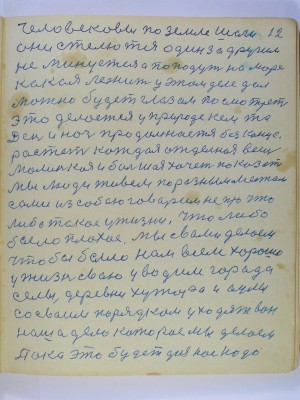 Человековы по земле шаги 12
они стелются один за другим
не минуется а попадут на море
какая лежит у этом деле дал
можно будет глазам посмотреть
это делается у природе кем та
Ден и ноч продолжаится без конца,
растет каждая отделная вещ
Малинкая и болшая хочет показат
мы люди живем по разным местам
сами из собою говарем не про что
либо такое у жизни, что либо
было плохае. мы с вами делаем
чтобы было нам всем хорошо
у жизн сваю уводим гарада
селы, деревни хутора и аулы
со своим порядком уходят вон
наша дело которае мы делаем
Пака это будет для нас надо